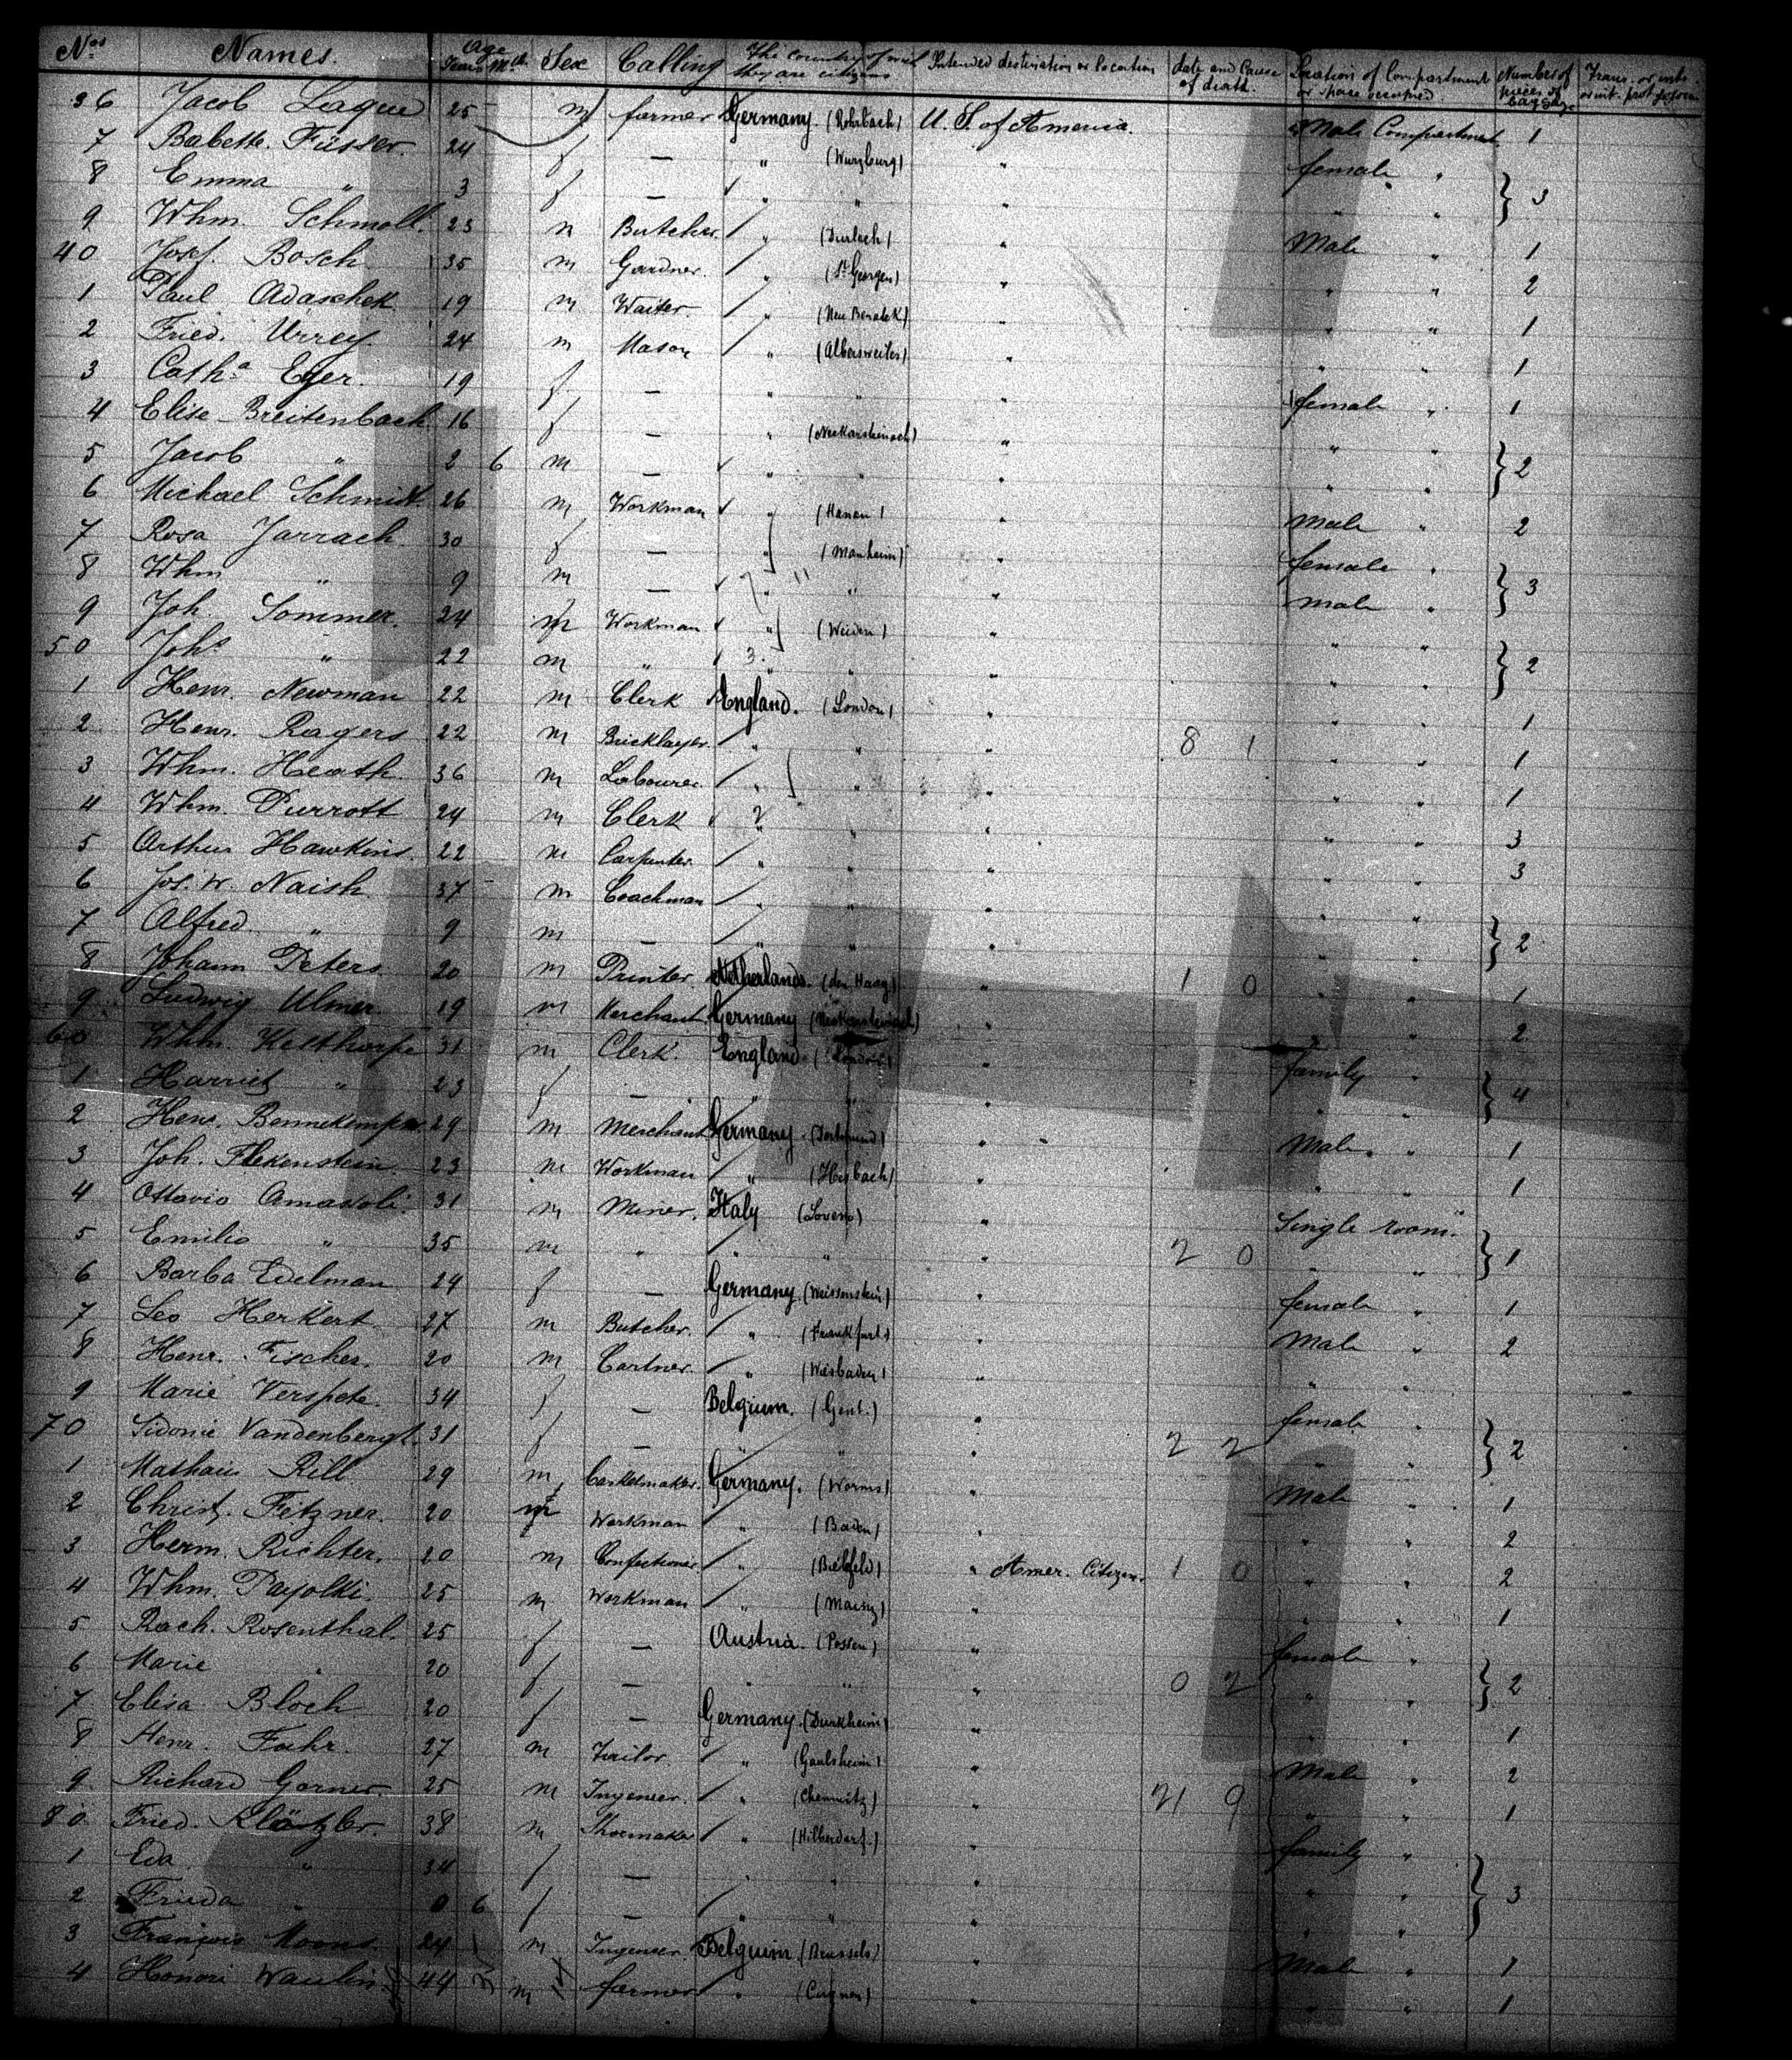 Nos Names. Age Years Mth Sex Calling The Country of wich they are citizens Intended destination or Location date and Cause of death. Location of Compartment or space occupied Number of pieces of baggage Trans. or
36 Jacob Laque 25 m farmer Germany. (Rohrbach) U. S. of America. Male Compartment 1
7 Babette Füsser 24 f — " (Wurzburg) " female "
8 Emma " 3 f — " " " " " } 3
9 Whm. Schmoll. 23 m Butcher " (Durlach) " Male " 1
40 Josef. Bosch 35 m Gardner. " (St Georgen) " " " 2
1 Paul Adaschek 19 m Waiter. " " " " 1
2 Fried. Urrey 24 m Mason " (Albersweiler) " " " 1
3 Catha Eger. 19 f — " " female " 1
4 Elise Breitenbach 16 f — " (Neckarsteinach) " " "
5 Jacob " 2 6 m — " " " " " } 2
6 Michael Schmidt. 26 m Workman " (Hanau) " Male " 2
7 Rosa Jarrach 30 f — " (Manheim) " female "
8 Whm " 9 m — " " male " } 3
9 Joh. Sommer. 24 m Workman " (Weiden) " " "
50 Johs " 22 m " 3. " " " " " } 2
1 Henr. Newman 22 m Clerk England. (London) " " 1
2 Henr. Ragers 22 m Bricklayer. " " " 8 1 " " 1
3 Whm. Heath. 36 m Labourer. " " " " " 1
4 Whm. Purrott 24 m Clerk " " " " " 3
5 Arthur Hawkins. 22 m Carpenter " " " " " 3
6 Jos. W. Naish 37 m Coachman " " " " "
7 Alfred " 9 m — " " " " " } 2
8 Johann Peters 20 m Printer. Netherlands. (den Haag) " 1 0 " " 1
9 Ludwig Ulmer. 19 m Merchant. Germany (Neckarsteinach) " " 2
60 Whm. Kelthorpe 31 m Clerk. England. (London) " family "
1 Harriet " 23 f — " " " " " } 4
2 Henr. Bennekemper 29 m Merchant Germany. (Dortmund) " Male. " 1
3 Joh. Flekenstein. 23 m Workman " " " " 1
4 Ottavio Amasoli. 31 m Miner. Italy (Lovero) " Single room. "
5 Emilio " 35 m " " " " 2 0 " " } 1
6 Barba Edelman 24 f — Germany. (Weissenstein) " female " 1
7 Leo Herkert. 27 m Butcher. " (Frankfurt.) " Male " 2
8 Henr. Fischer. 20 m Cartner. " (Wiesbaden) " " "
9 Marie Verspete. 34 f — Belgium. (Gent.) " female "
70 Sidonie Vandenbergt. 31 f — " " " 2 2 " " } 2
1 Mathaus Rill 29 m Casketmaker. Germany. (Worms) " Male " 1
2 Christ. Fitzner. 20 m Workman " (Baden) " " " 2
3 Herm. Richter. 20 m Confectioner " (Bielefeld) " Amer. Citizen. 1 0 " " 2
4 Whm. Payolki. 25 m Workman " (Mainz) " " " 1
5 Rach. Rosenthal. 25 f — Austria. (Possen) " female "
6 Marie " 20 f — " " " 0 2 " " } 2
7 Elisa Bloch 20 f — Germany. (Durkheim) " " " 1
8 Henr. Fahr. 27 m Tailor. " (Gaulsheim) " Male " 2
9 Richard Garner. 25 m Ingeneer. " (Chemnitz) " 21 9 " " 1
80 Fried. Klätzler. 38 m Shoemaker " (Hilberdorf.) " family "
1 Eda " 34 f — " " " " "
2 Frieda " 0 6 f — " " " " " } 3
3 François Moons. 24 m Ingeneer Belguim. (Brussels) " Male " 1
4 Honori Waulin 44 m farmer " (Cugnon) " " " 1